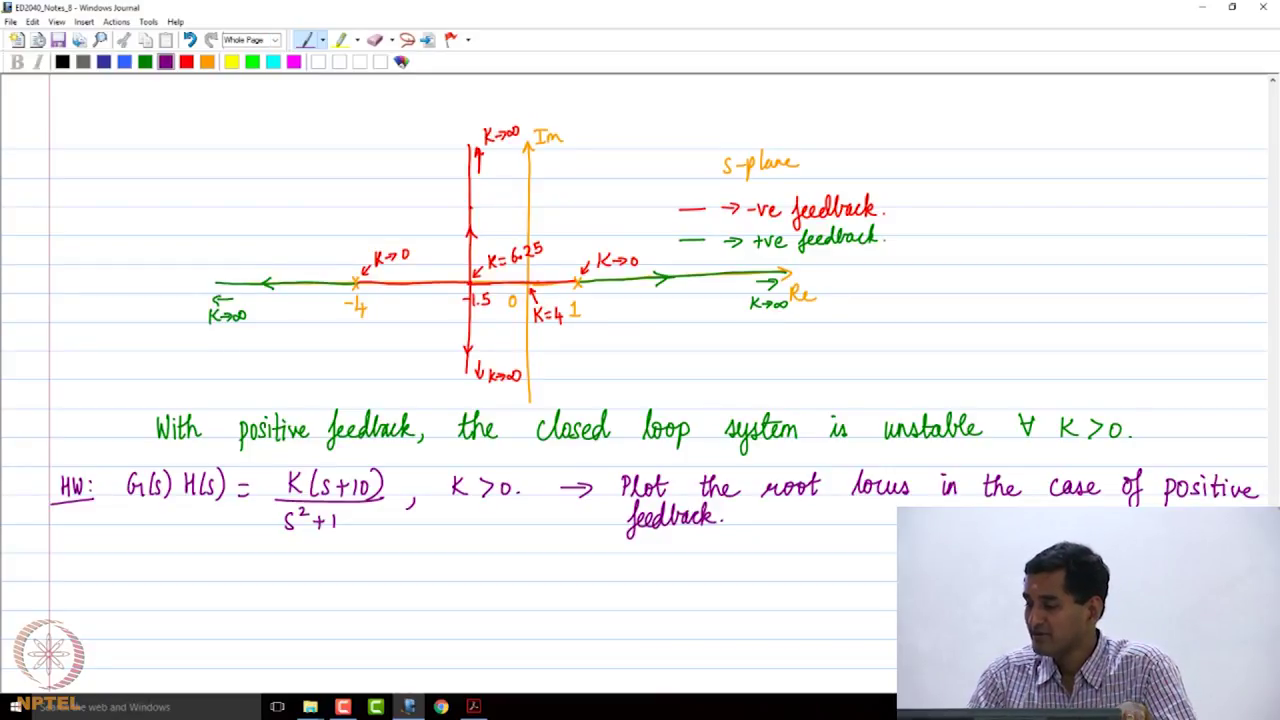 ED2040_Notes_8 - Windows Journal
File Edit View Insert Actions Tools Help
Whole Page
B I
K→∞ Im
s-plane
→ -ve feedback.
→ +ve feedback.
K→0 K=6.25 K→0
-4 -1.5 0 K=4 1 K→∞ Re
K→∞
K→∞
With positive feedback, the closed loop system is unstable ∀ K>0.
HW: G(s) H(s) = K(s+10) / s²+1 , K>0. → Plot the root locus in the case of positive
feedback.
NPTEL
Search the web and Windows